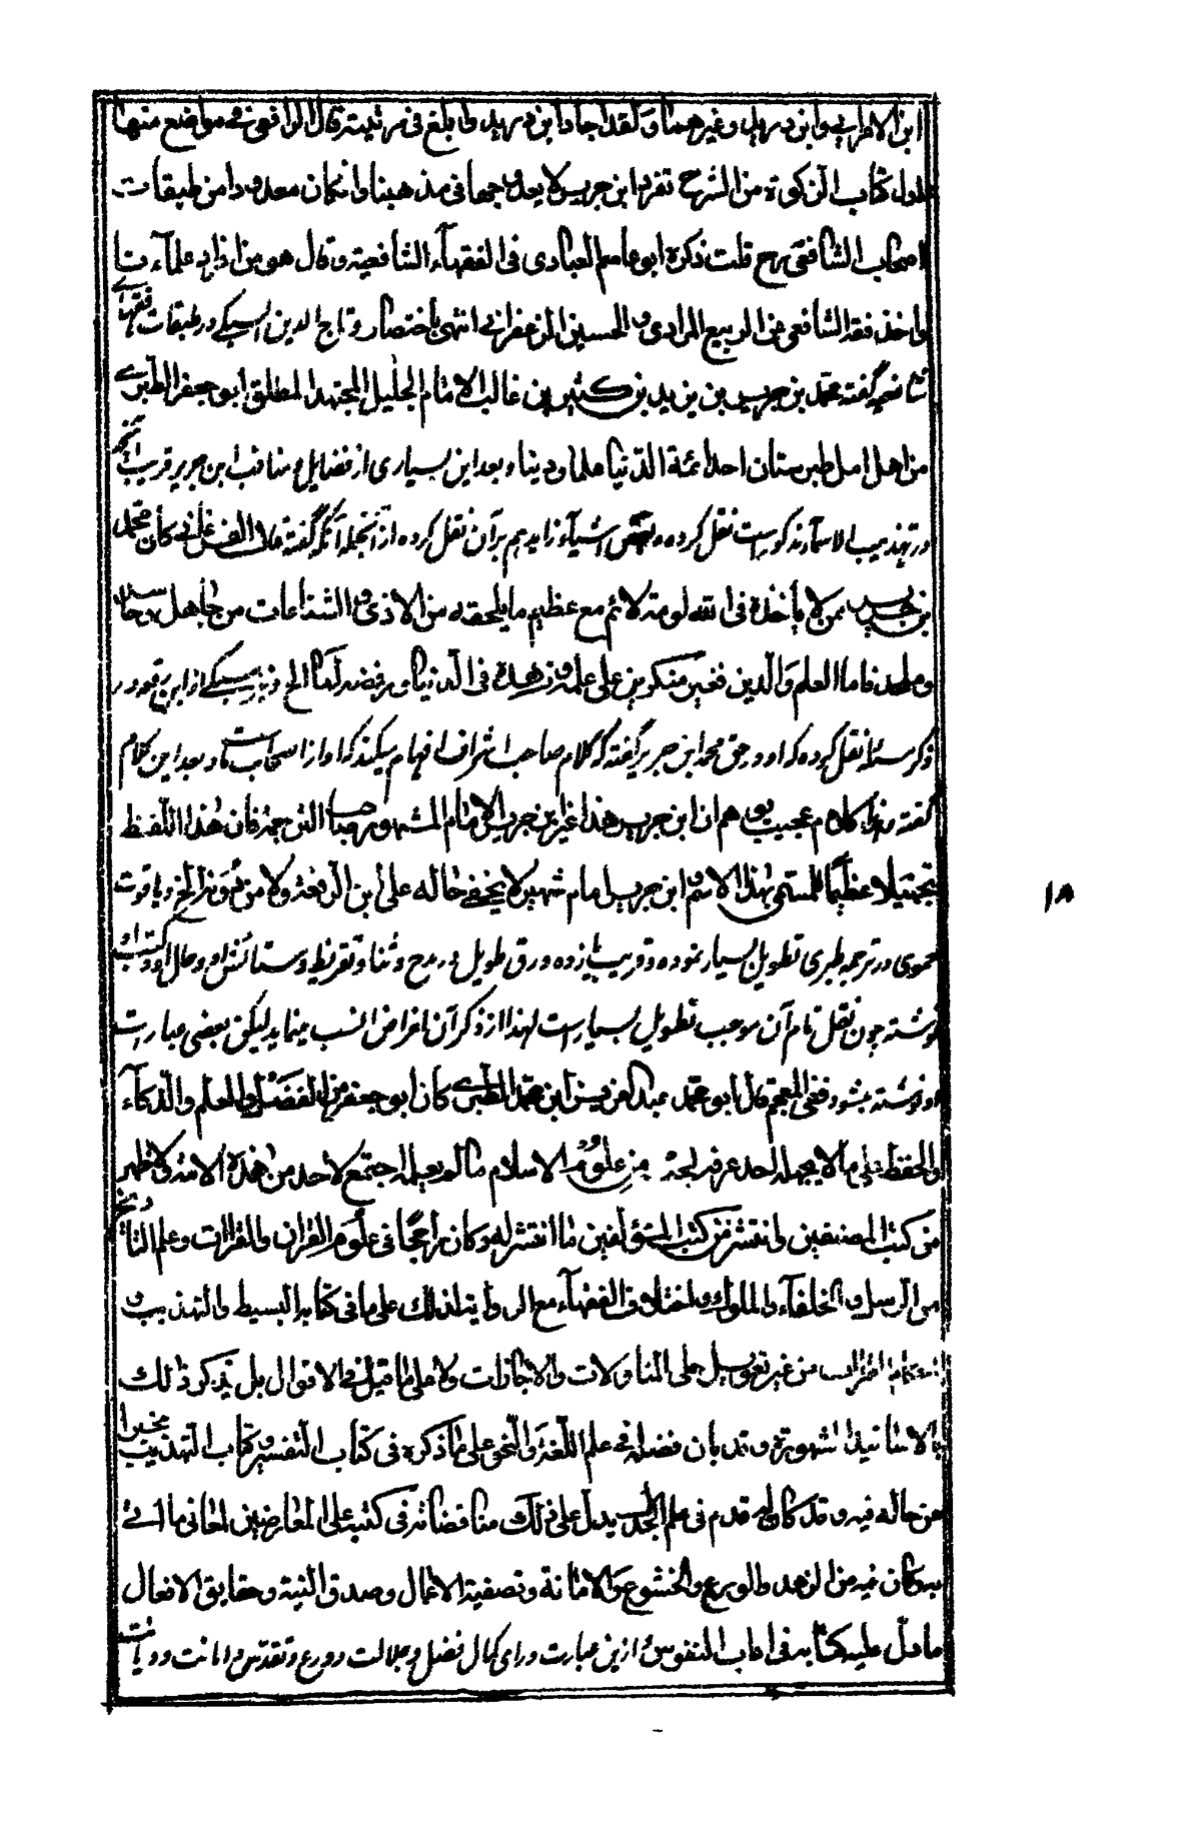 ابن الاعرابي وابن دريد وغيرهما ولقد اجاد ابن دريد وابلغ في مرثيته قال الرافعي في مواضع منها
اول كتاب الزكوة من الشرح تفرد ابن جرير لا يعد وجها في مذهبنا وان كان معدودا من طبقات
اصحاب الشافعي رح قلت ذكره ابو عاصم العبادي في الفقهاء الشافعية وقال هو من افراد علمائنا
واخذ فقه الشافعي من الربيع المرادي والحسين الزعفراني انتهى باختصار وتاج الدين السبكي در طبقات فقهاي
شافعيه گفته محمد بن جرير بن يزيد بن كثير بن غالب الامام الجليل المجتهد المطلق ابو جعفر الطبري
من اهل امل طبرستان احد ائمة الدنيا علما ودينا وبعد اين بسياري از فضايل ومناقب ابن جرير قريب آنچه
در تهذيب الاسماء مذكور است نقل كرده وبعض اشياء زايد هم بر آن نقل كرده از آنجمله آنكه گفته قال الفرغاني كان محمد
بن جرير ممن لا يأخذه في الله لومة لائم مع عظيم ما يلحقه من الاذى والشناعات من جاهل وحاسد
وملحد فاما العلم والدين فغير منكرين علمه وزهده في الدنيا ورفضه لها الخ ونيز سبكي از ابن رفعه در
ذكر مسئله نقل كرده كه او در حق محمد ابن جرير گفته كه كلام صاحب اشراف افهام ميكند كه او از اصحاب ما است وبعد اين كلام
گفته وهذا كلام عجيب يوهم ان ابن جرير هذا غير ابن جرير الامام المشهور صاحب الترجمة فان هذا اللفظ
تجهيلا عظيما للمسمى بهذا الاسم وابن جرير امام شهير لا يخفى حاله على ابن الرفعة ولا من دونه الخ وياقوت
حموي در ترجمه طبري تطويل بسيار نموده وقريب پانزده ورق طويل در مدح وثنا وتقريظ وستائش او وحال او وكتب او
نوشته چون نقل تمام آن موجب تطويل بسيار است لهذا از ذكر آن اغراض انسب مينمايد ليكن بعضي عبارت
او نوشته ميشود ففي المعجم قال ابو محمد عبد العزيز ابن محمد الطبري كان ابو جعفر من الفضل والعلم والذكاء
والحفظ على ما لا يجهله احد عرفه لجمعه من علوم الاسلام ما لم نعلمه اجتمع لاحد من هذه الامة ولا ظهر
من كتب المصنفين وانتشر من كتب المؤلفين ما انتشر له وكان راجحا في علوم القران والقراات وعلم التاريخ
من الرسل والخلفاء والملوك واختلاف الفقهاء مع الرواية لذلك على ما في كتابه البسيط والتهذيب و
احكام القراات من غير تعويل على المناولات والاجازات ولا على ما قيل في الاقوال بل يذكر ذلك
بالاسانيد المشهورة وقد بان فضله في علم اللغة والنحو على ما ذكره في كتاب التفسير وكتاب التهذيب مخبرا
عن حاله فيه وقد كان له قدم في علم الجدل يدل على ذلك مناقضاته في كتبه على المعارضين لمعاني ما اتى
به وكان فيه من الزهد والورع والخشوع والامانة وتصفية الاعمال وصدق النية وحقايق الافعال
ما دل عليه كتابه في اداب النفوس از ين عبارت وراي كمال فضل وجلالت وورع وتقدس وامانت وديانت
١٨